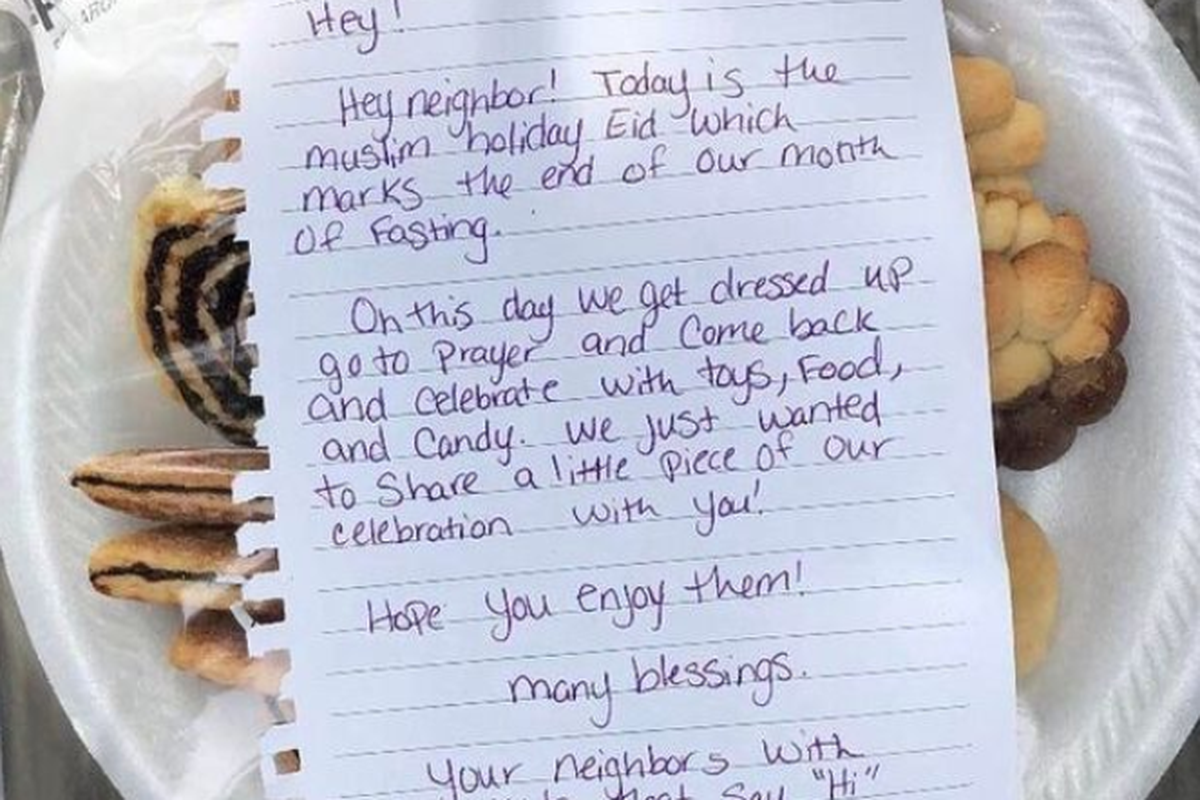 Hey!
Hey neighbor! Today is the
muslim holiday Eid which
marks the end of our month
of Fasting.
On this day we get dressed up
go to prayer and come back
and celebrate with toys, Food,
and Candy. we just wanted
to share a little piece of our
celebration with you!
Hope you enjoy them!
many blessings.
Your neighbors with
that say "Hi"